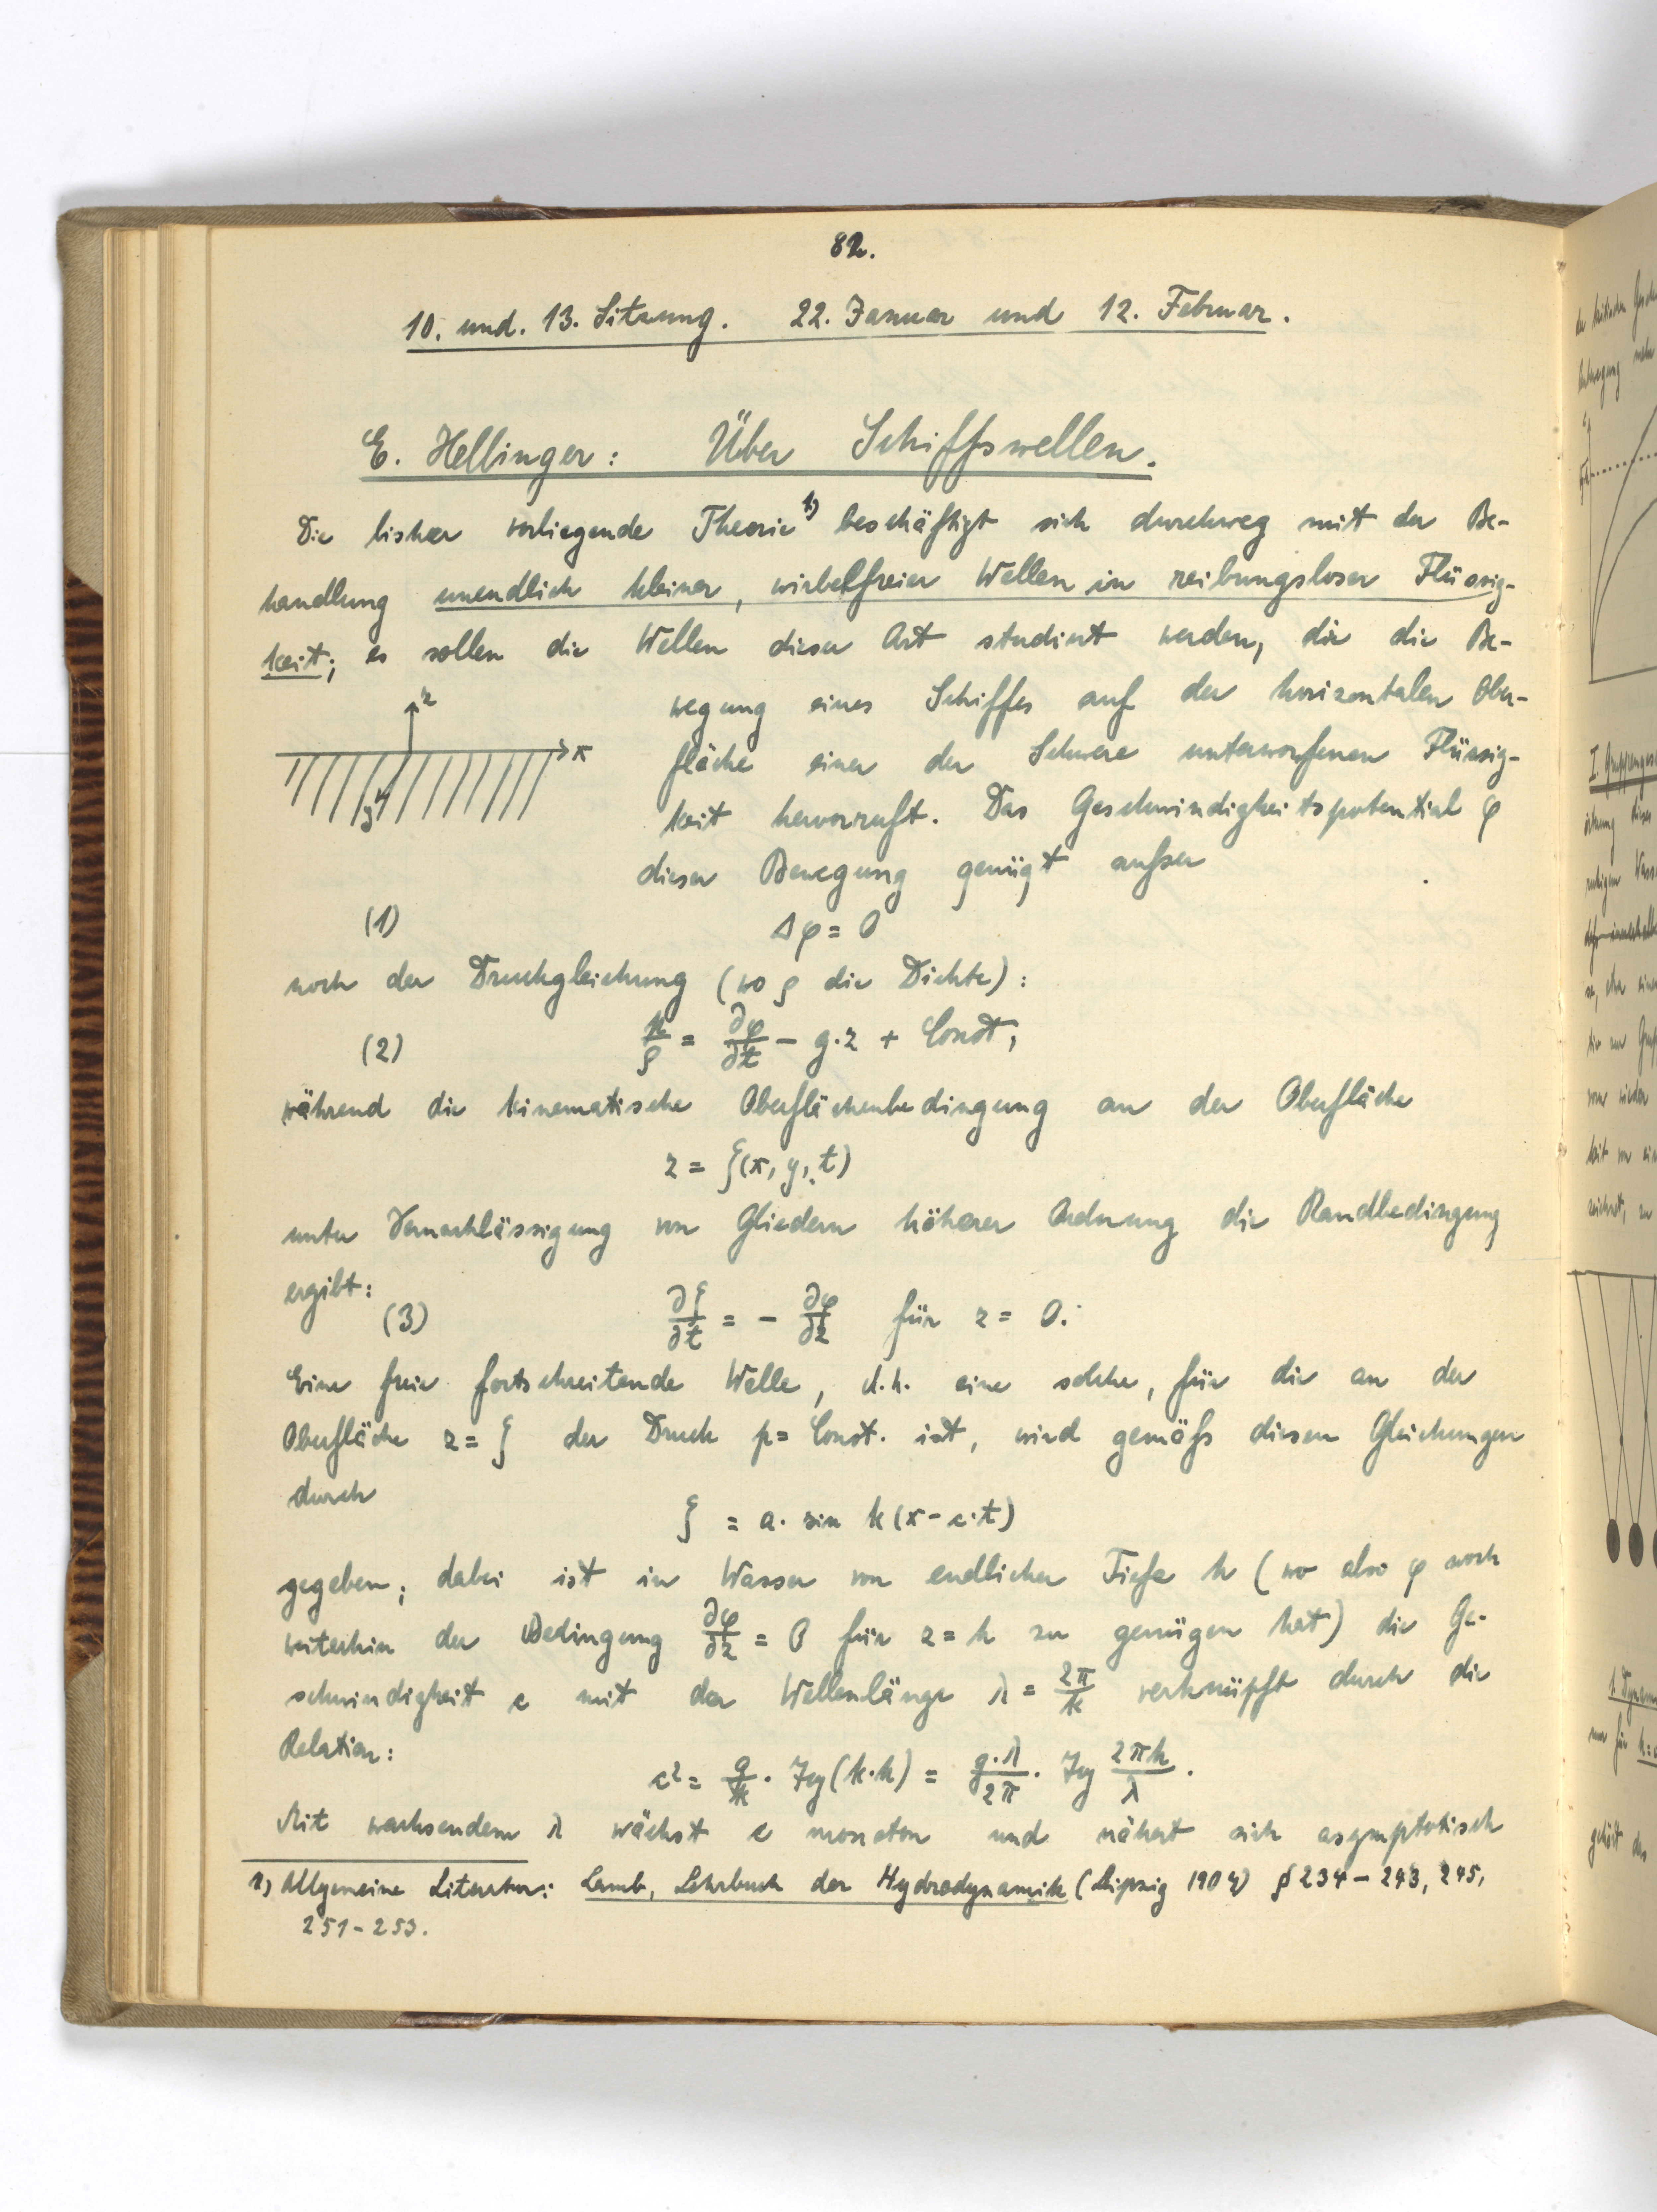 82.
10. und. 13. Sitzung. 22. Januar und 12. Februar.
E. Hellinger: Über Schiffswellen.
Die bisher vorliegende Theorie 1) beschäftigt sich durchweg mit der Be-
handlung unendlich kleiner, wirbelfreier Wellen in reibungsloser Flüssig-
keit; es sollen die Wellen dieser Art studiert werden, die die Be-
wegung eines Schiffes auf der horizontalen Ober-
z
x
fläche einer der Schwere unterworfenen Flüssig-
y
keit hervorruft. Das Geschwindigkeitspotential φ
dieser Bewegung genügt aufser
(1) Δφ = 0
noch der Druckgleichung (wo ρ die Dichte):
(2) p/ρ = ∂φ/∂t - g·z + Const,
während die kinematische Oberflächenbedingung an der Oberfläche
z = ζ(x, y, t)
unter Vernachlässigung von Gliedern höherer Ordnung die Randbedingung
ergibt:
(3) ∂ζ/∂t = - ∂φ/∂z für z = 0.
Eine freie fortschreitende Welle, d.h. eine solche, für die an der
Oberfläche z = ζ der Druck p = Const. ist, wird gemäfs diesen Gleichungen
durch
ζ = a· sin k(x - c·t)
gegeben; dabei ist in Wasser von endlicher Tiefe h (wo also φ noch
weiterhin der Bedingung ∂φ/∂z = 0 für z = h zu genügen hat) die Ge-
schwindigkeit c mit der Wellenlänge λ = 2π/k verknüpft durch die
Relation:
c² = g/k · Tg(k·h) = g·λ/2π · Tg 2πh/λ.
Mit wachsendem λ wächst c monoton und nähert sich asymptotisch
1) Allgemeine Literatur: Lamb, Lehrbuch der Hydrodynamik (Leipzig 1907) § 234 - 243, 245,
251 - 253.